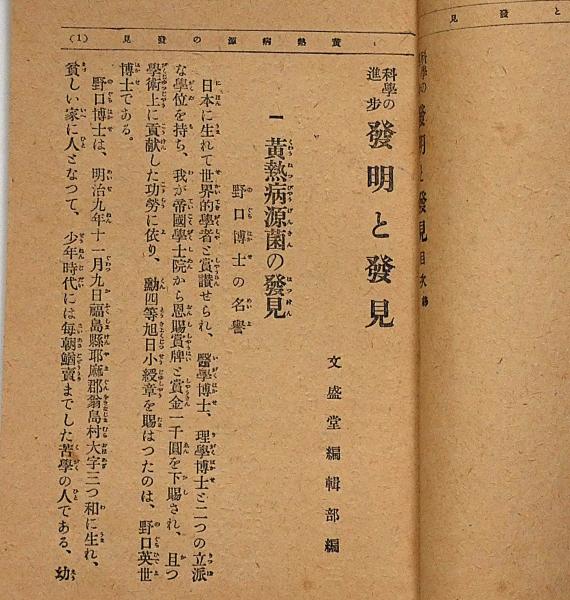 と發見
科學の進步 發明と發見 目次 終
黃熱病源の發見 (1)
科學の進步 發明と發見
文盛堂編輯部編
一 黃熱病源菌の發見
野口博士の名譽
日本に生れて世界的學者と賞讃せられ、醫學博士、理學博士と二つの立派
な學位を持ち、我が帝國學士院から恩賜賞牌と賞金一千圓を下賜され、且つ
學術上に貢献した功勞に依り、勳四等旭日小綬章を賜はつたのは、野口英世
博士である。
野口博士は、明治九年十一月九日福島縣耶麻郡翁島村大字三つ和に生れ、
貧しい家に人となつて、少年時代には每朝鰌賣までした苦學の人である、幼